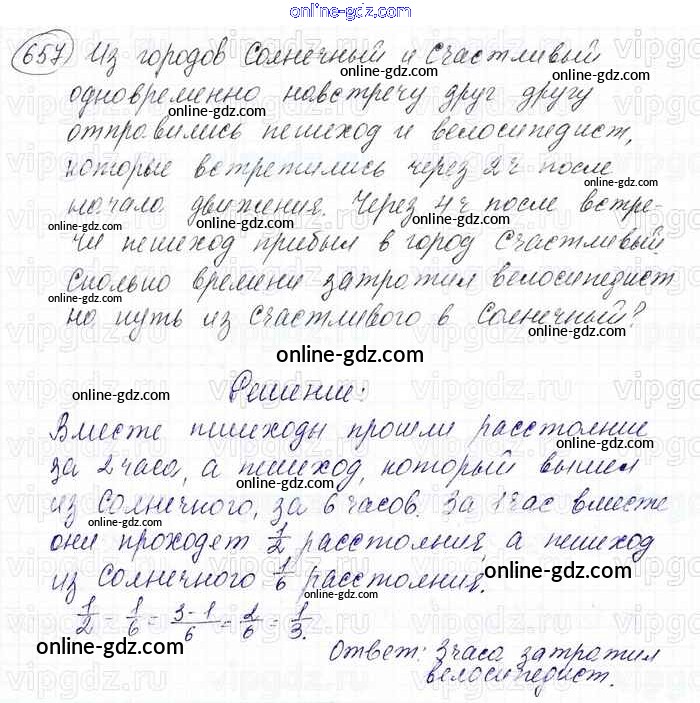 online-gdz.com
online-gdz.com
657) Из городов Солнечный и Счастливый
online-gdz.com
одновременно навстречу друг другу
online-gdz.com
отправились пешеход и велосипедист,
которые встретились через 2ч после
online-gdz.com
начала движения. Через 4ч после встре-
online-gdz.com
чи пешеход прибыл в город Счастливый.
online-gdz.com
Сколько времени затратил велосипедист
online-gdz.com
на путь из Счастливого в Солнечный?
online-gdz.com
Решение:
online-gdz.com
Вместе пешеходы прошли расстояние
online-gdz.com
за 2 часа, а пешеход, который вышел
online-gdz.com
из Солнечного, за 6 часов. За 1 час вместе
online-gdz.com
они проходят 1/2 расстояния, а пешеход
из Солнечного 1/6 расстояния.
online-gdz.com
1/2 - 1/6 = 3-1/6 = 2/6 = 1/3.
online-gdz.com
Ответ: 3 часа затратил
online-gdz.com
велосипедист.
online-gdz.com